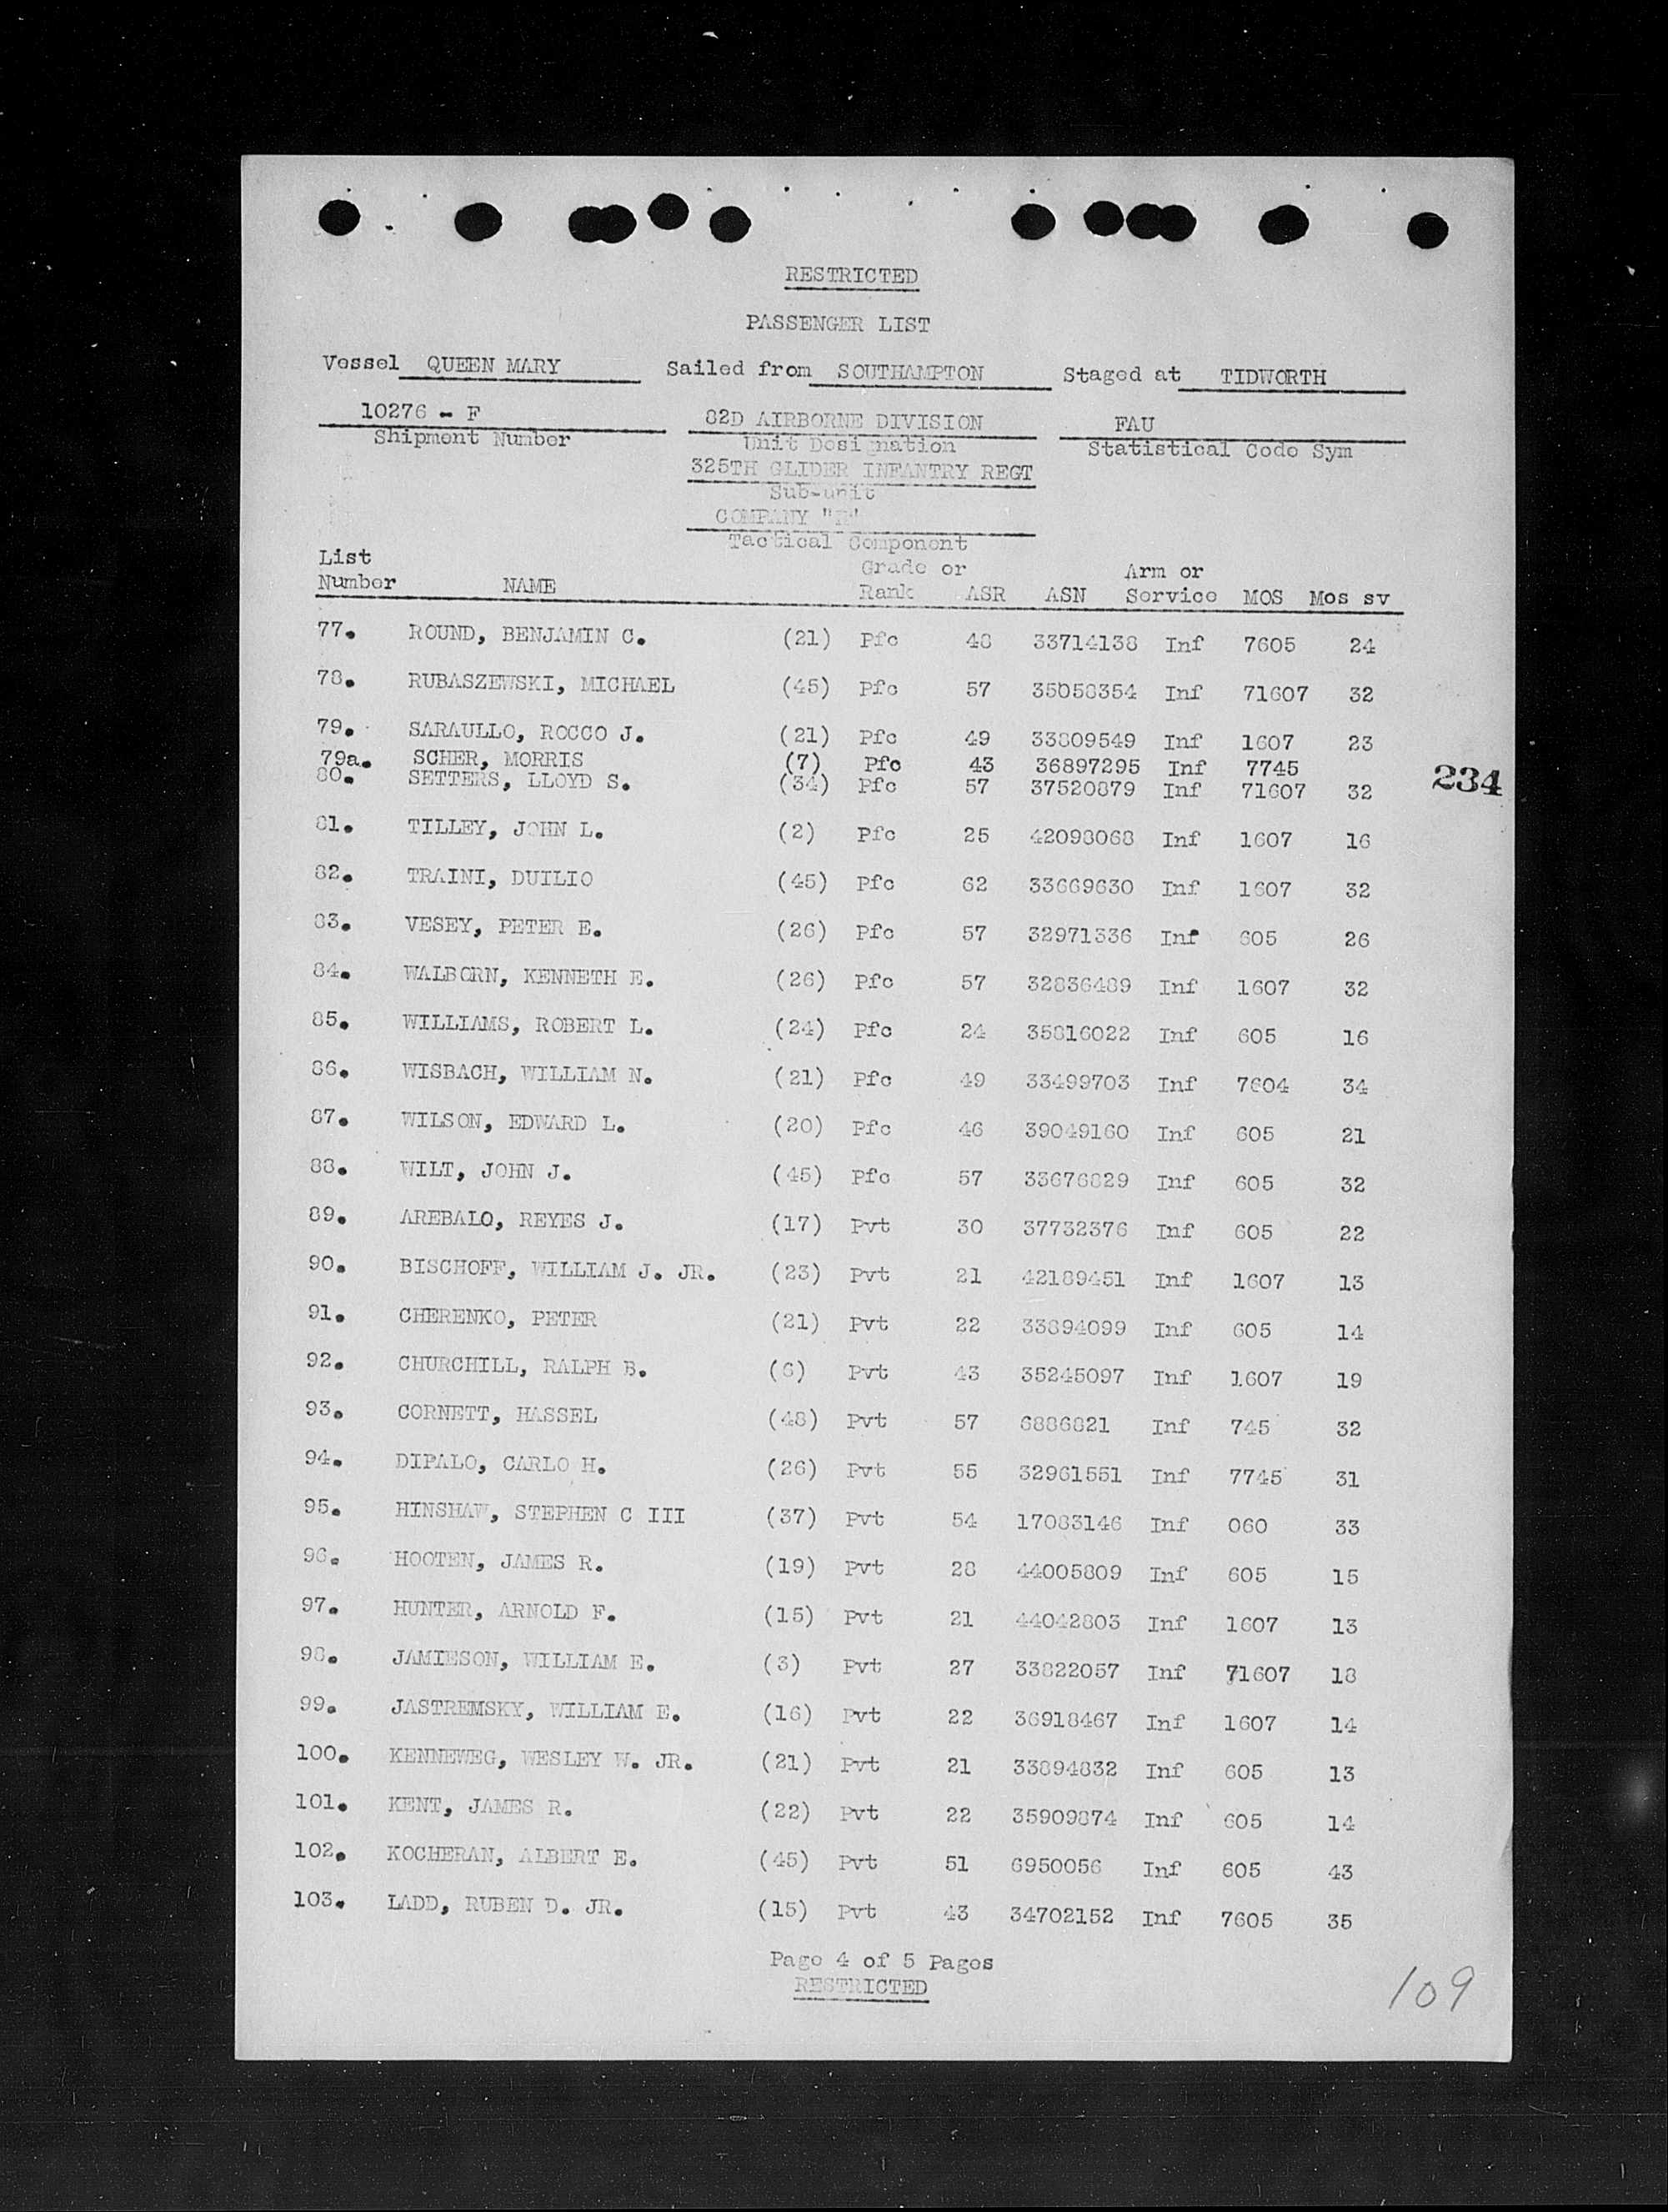 RESTRICTED
PASSENGER LIST
Vessel QUEEN MARY Sailed from SOUTHAMPTON Staged at TIDWORTH
10276 - F 82D AIRBORNE DIVISION FAU
Shipment Number Unit Designation Statistical Code Sym
325TH GLIDER INFANTRY REGT
Sub-unit
COMPANY
Tactical Component
List Number NAME Grade or Rank ASR ASN Arm or Service MOS Mos sv
77. ROUND, BENJAMIN C. (21) Pfc 48 33714138 Inf 7605 24
78. RUBASZEWSKI, MICHAEL (45) Pfc 57 35058354 Inf 71607 32
79. SARAULLO, ROCCO J. (21) Pfc 49 33809549 Inf 1607 23
79a. SCHER, MORRIS (7) Pfc 43 36897295 Inf 7745
234
80. SETTERS, LLOYD S. (34) Pfc 57 37520879 Inf 71607 32
81. TILLEY, JOHN L. (2) Pfc 25 42098068 Inf 1607 16
82. TRAINI, DUILIO (45) Pfc 62 33669630 Inf 1607 32
83. VESEY, PETER E. (26) Pfc 57 32971336 Inf 605 26
84. WALBORN, KENNETH E. (26) Pfc 57 32836489 Inf 1607 32
85. WILLIAMS, ROBERT L. (24) Pfc 24 35816022 Inf 605 16
86. WISBACH, WILLIAM N. (21) Pfc 49 33499703 Inf 7604 34
87. WILSON, EDWARD L. (20) Pfc 46 39049160 Inf 605 21
88. WILT, JOHN J. (45) Pfc 57 33676829 Inf 605 32
89. AREBALO, REYES J. (17) Pvt 30 37732376 Inf 605 22
90. BISCHOFF, WILLIAM J. JR. (23) Pvt 21 42189451 Inf 1607 13
91. CHERENKO, PETER (21) Pvt 22 33894099 Inf 605 14
92. CHURCHILL, RALPH B. (6) Pvt 43 35245097 Inf 1607 19
93. CORNETT, HASSEL (48) Pvt 57 6886821 Inf 745 32
94. DIPALO, CARLO H. (26) Pvt 55 32961551 Inf 7745 31
95. HINSHAW, STEPHEN C III (37) Pvt 54 17083146 Inf 060 33
96. HOOTEN, JAMES R. (19) Pvt 28 44005809 Inf 605 15
97. HUNTER, ARNOLD F. (15) Pvt 21 44042803 Inf 1607 13
98. JAMIESON, WILLIAM E. (3) Pvt 27 33822057 Inf 71607 18
99. JASTREMSKY, WILLIAM E. (16) Pvt 22 36918467 Inf 1607 14
100. KENNEWEG, WESLEY W. JR. (21) Pvt 21 33894832 Inf 605 13
101. KENT, JAMES R. (22) Pvt 22 35909874 Inf 605 14
102. KOCHERAN, ALBERT E. (45) Pvt 51 6950056 Inf 605 43
103. LADD, RUBEN D. JR. (15) Pvt 43 34702152 Inf 7605 35
Page 4 of 5 Pages
RESTRICTED
109